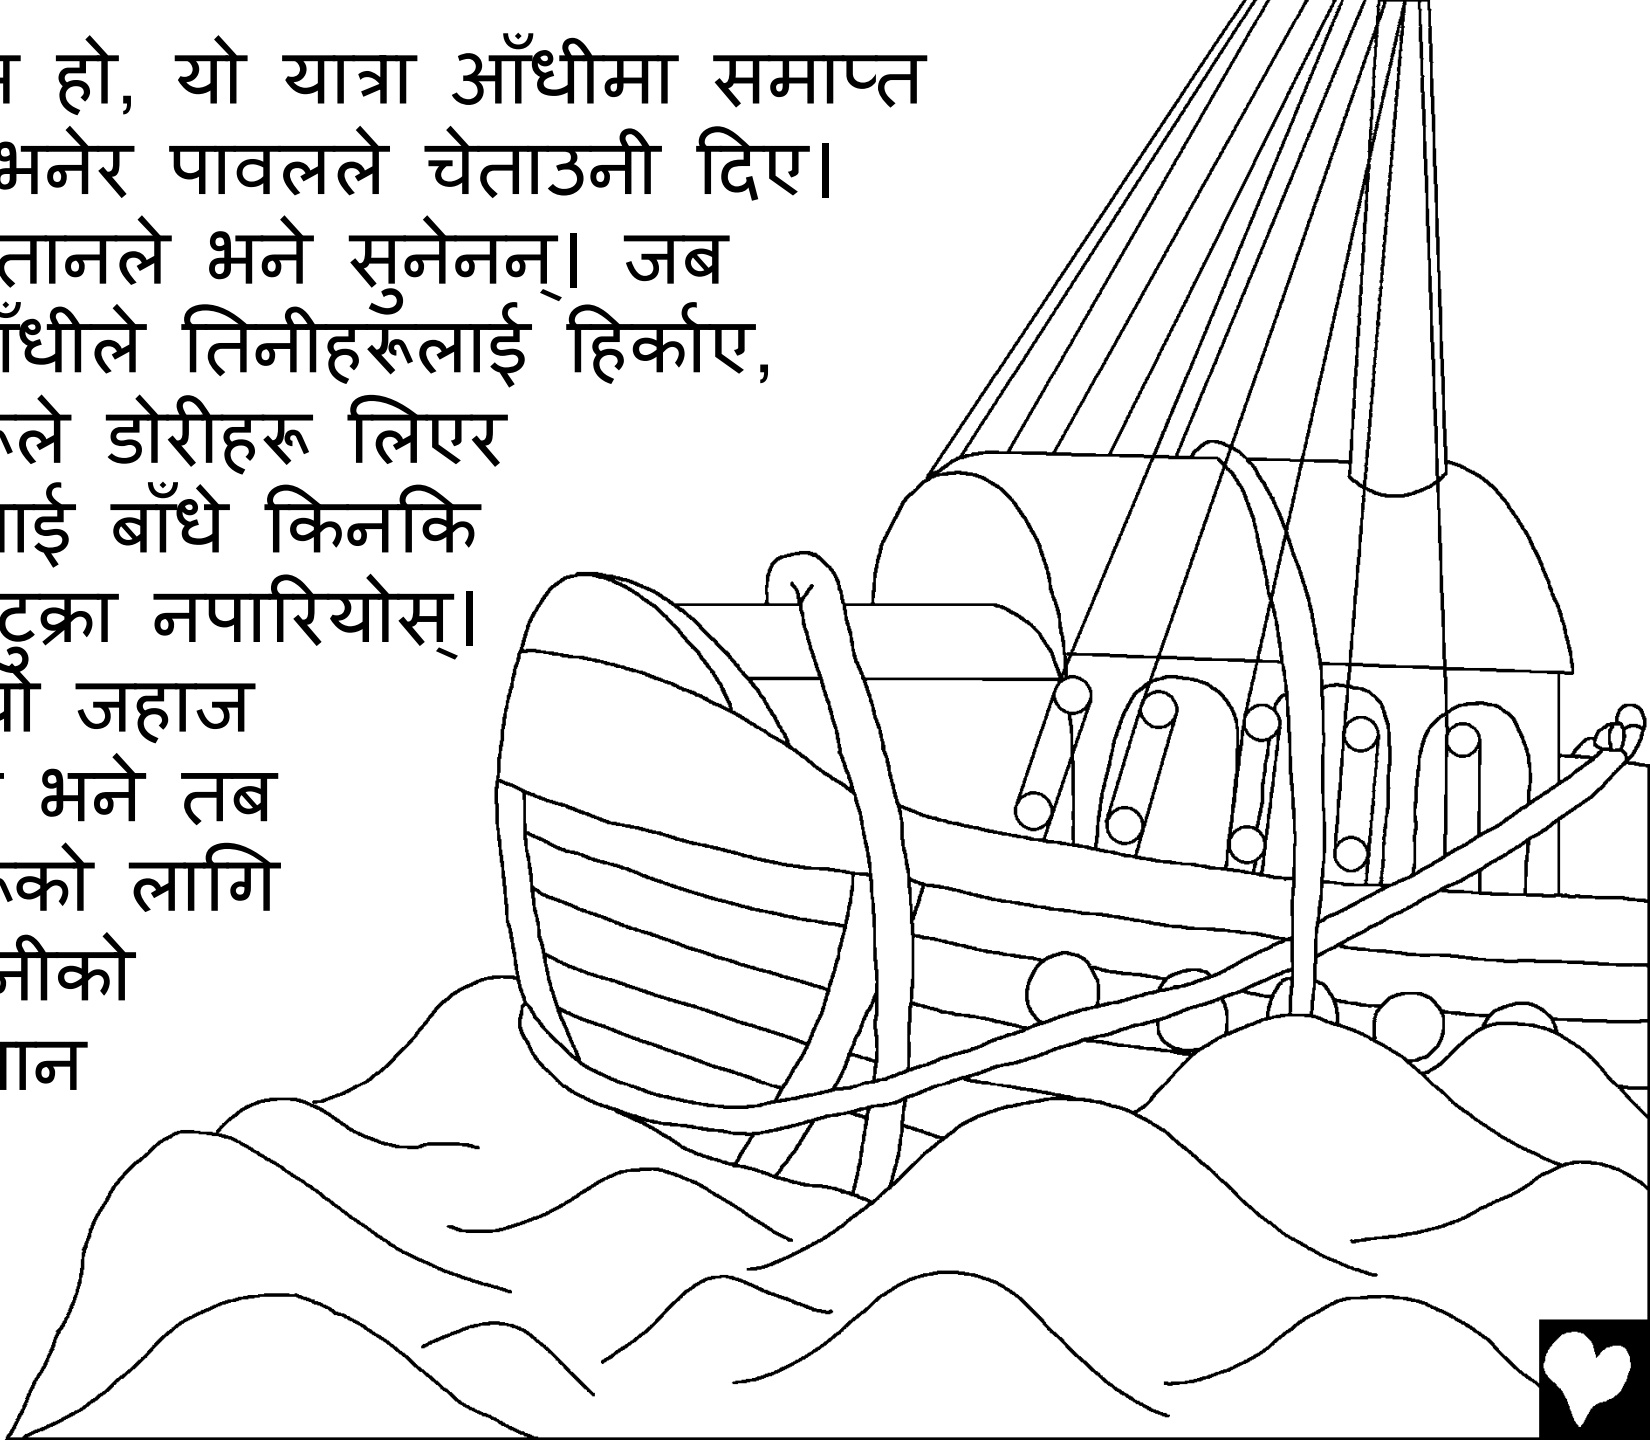 हो, यो यात्रा आँधीमा समाप्त
भनेर पावलले चेताउनी दिए।
भने सुनेनन्। जब
तिनीहरूलाई हिर्काए,
डोरीहरू लिएर
बाँधे किनकि
नपारियोस्।
जहाज
भने तब
लागि